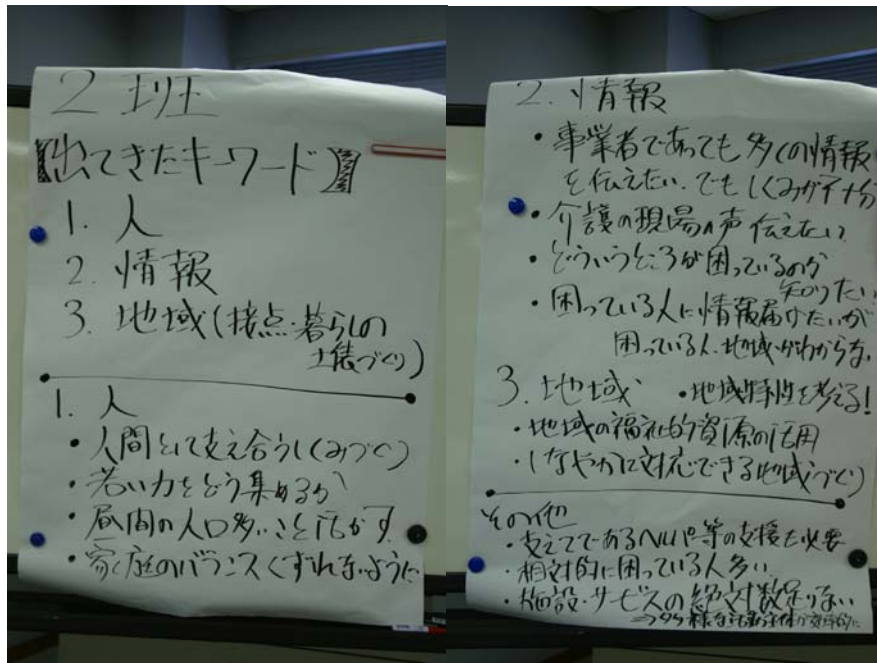 2 班
【出てきたキーワード】
1. 人
2. 情報
3. 地域(接点・暮らしの
土俵づくり)
1. 人
・人間として支え合うしくみづくり
・若い力をどう集めるか
・昼間の人口多いこと活かす
・家庭のバランスくずれないように
2. 情報
・事業者であっても多くの情報
を伝えたい.でもしくみが不十分
・介護の現場の声伝えたい
・どういうところが困っているのか
知りたい
・困っている人に情報届けたいが
困っている人.地域がわからな.
3. 地域 ・地域特性を考える!
・地域の福祉的資源の活用
・しなやかに対応できる地域づくり
その他
・支えてであるヘルパー等の支援も必要
・相対的に困っている人多い
・施設・サービスの絶対数足りない